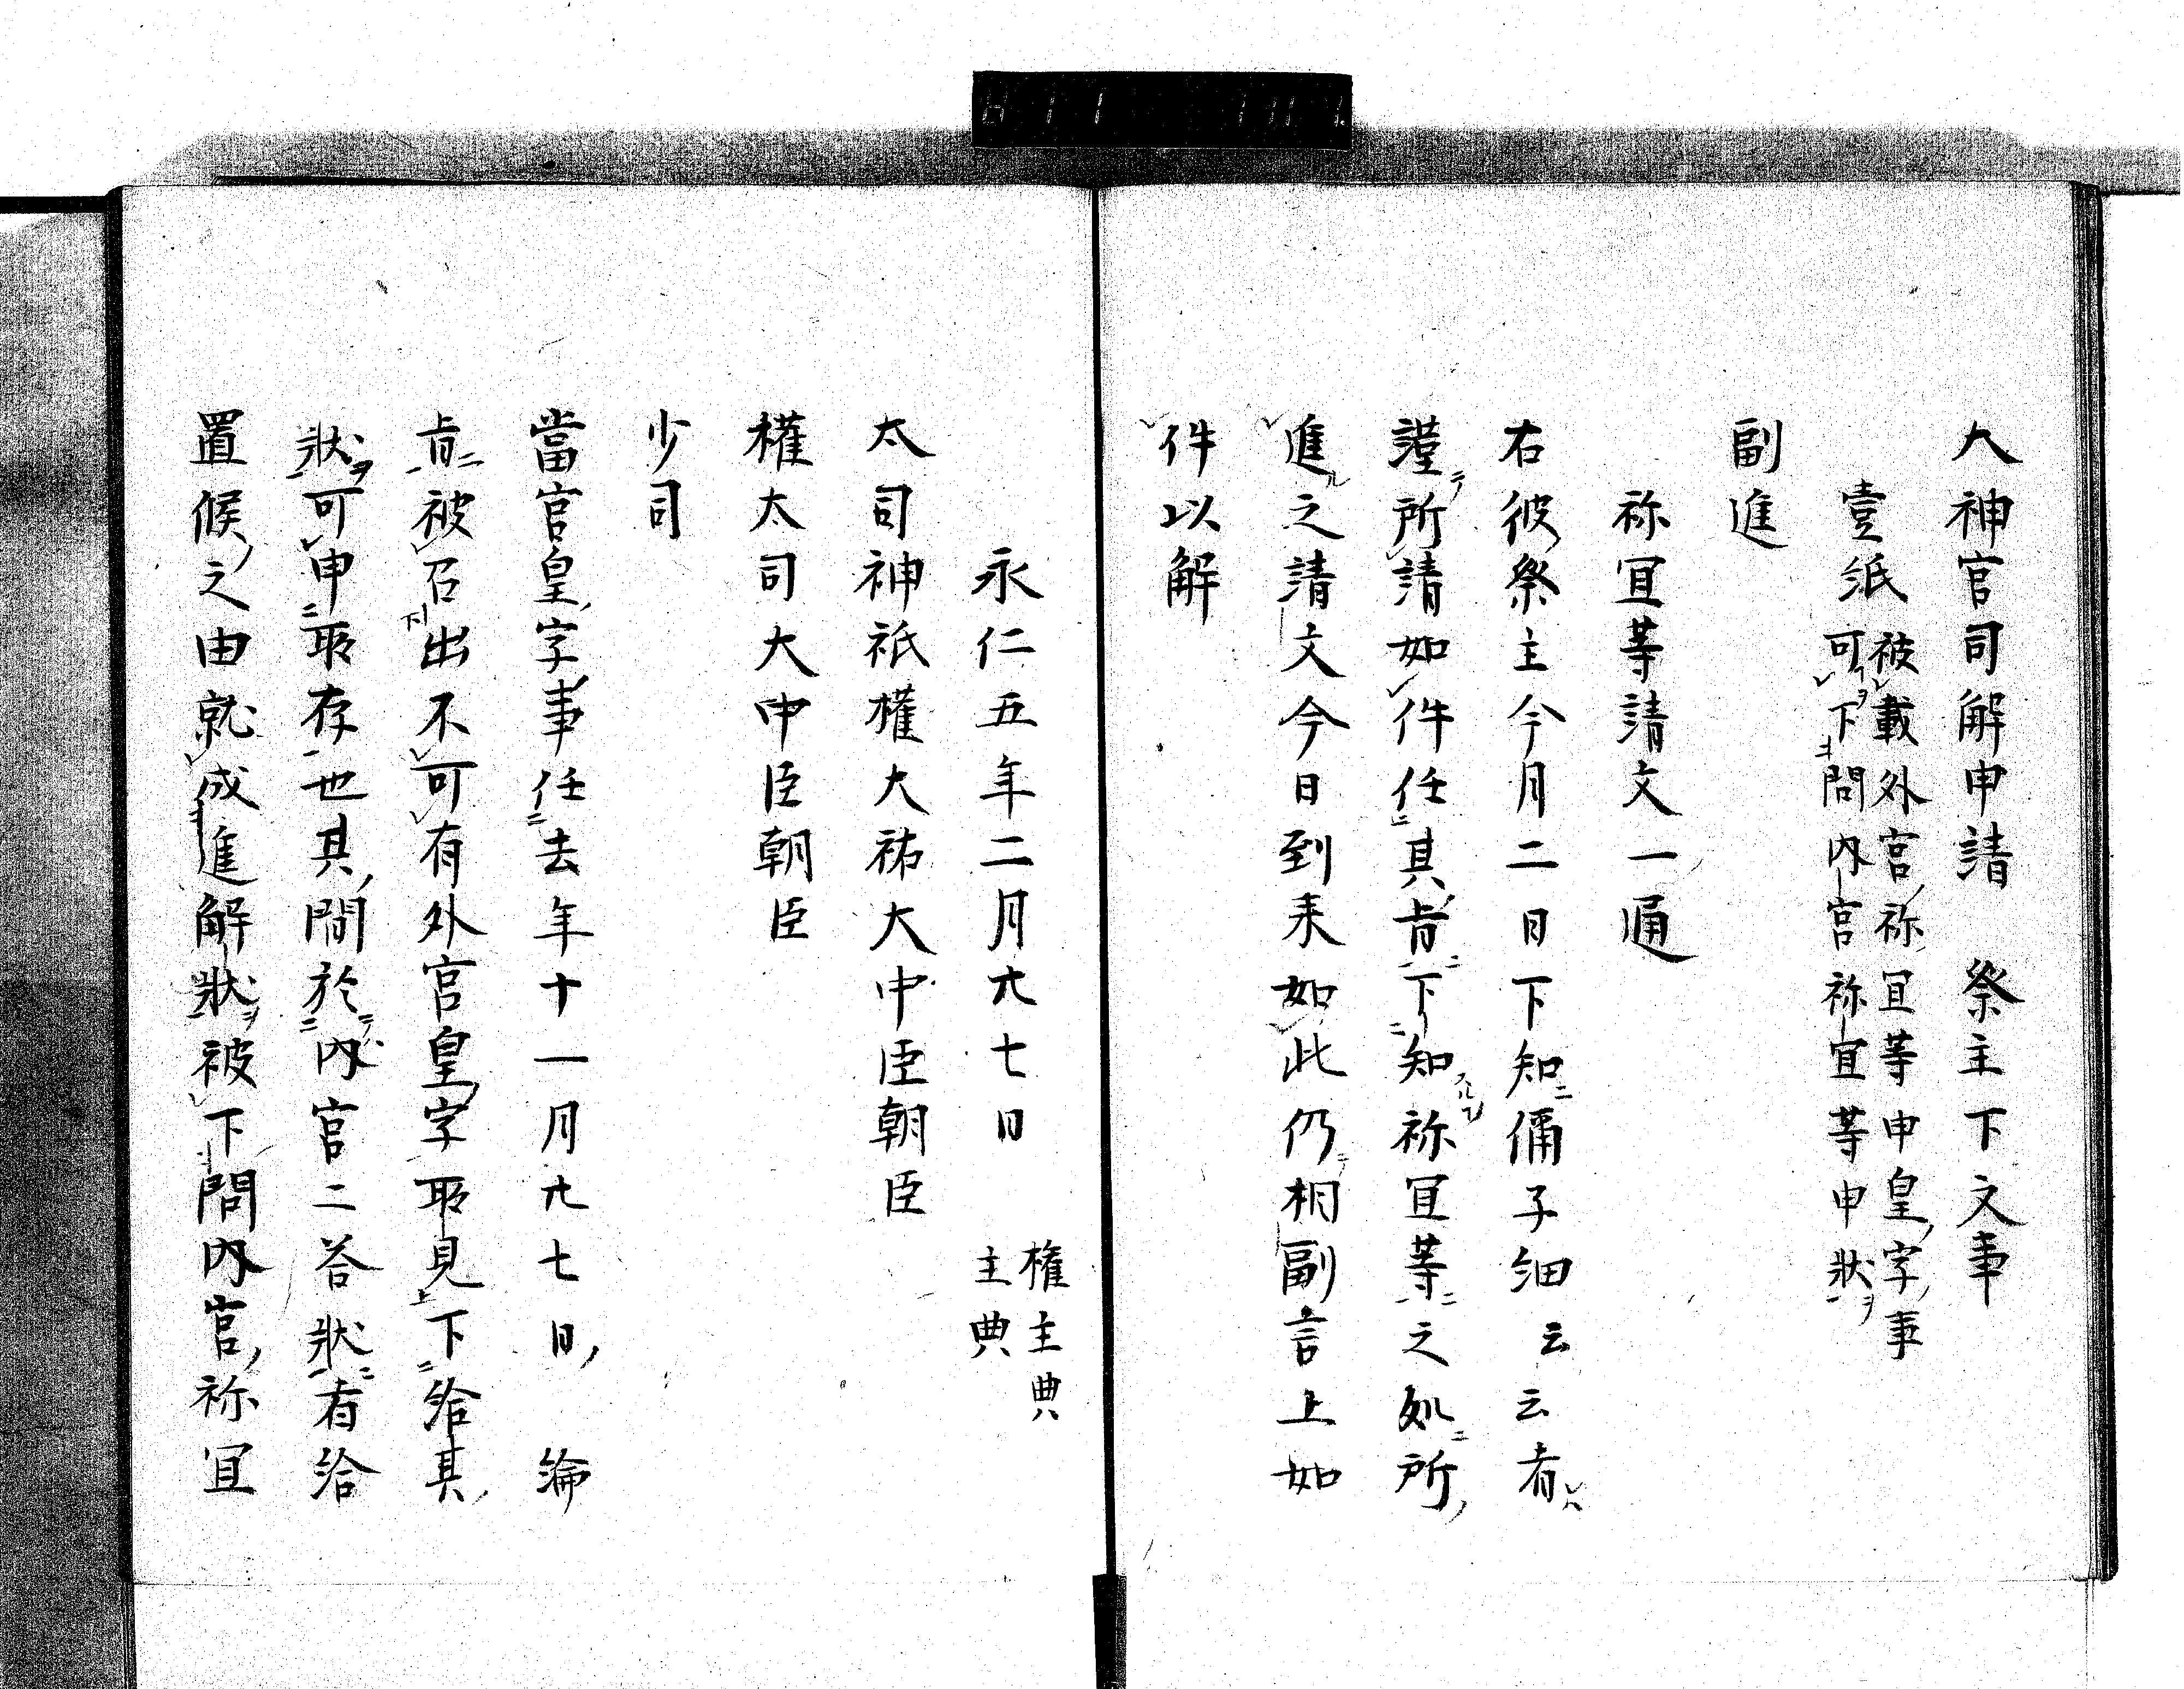 大神宮司解申請　祭主下文事
壹紙
被載外宮禰冝等申皇字事
可下問内宮禰冝等申狀
副進
禰冝等請文一通
右彼祭主今月二日下知偁子細云云者
謹所請如件任其㫖下知禰冝等之処所
進之請文今日到来如此仍相副言上如
件以解
永仁五年二月廿七日
権主典
主典
太司神祇權大祐大中臣朝臣
權太司大中臣朝臣
少司
當宮皇字事任去年十一月廿七日綸
㫖被召出不可有外宮皇字所見下給其
狀可申所存也其間於内宮二答狀者給
置候之由就成進解狀被下問内宮禰冝